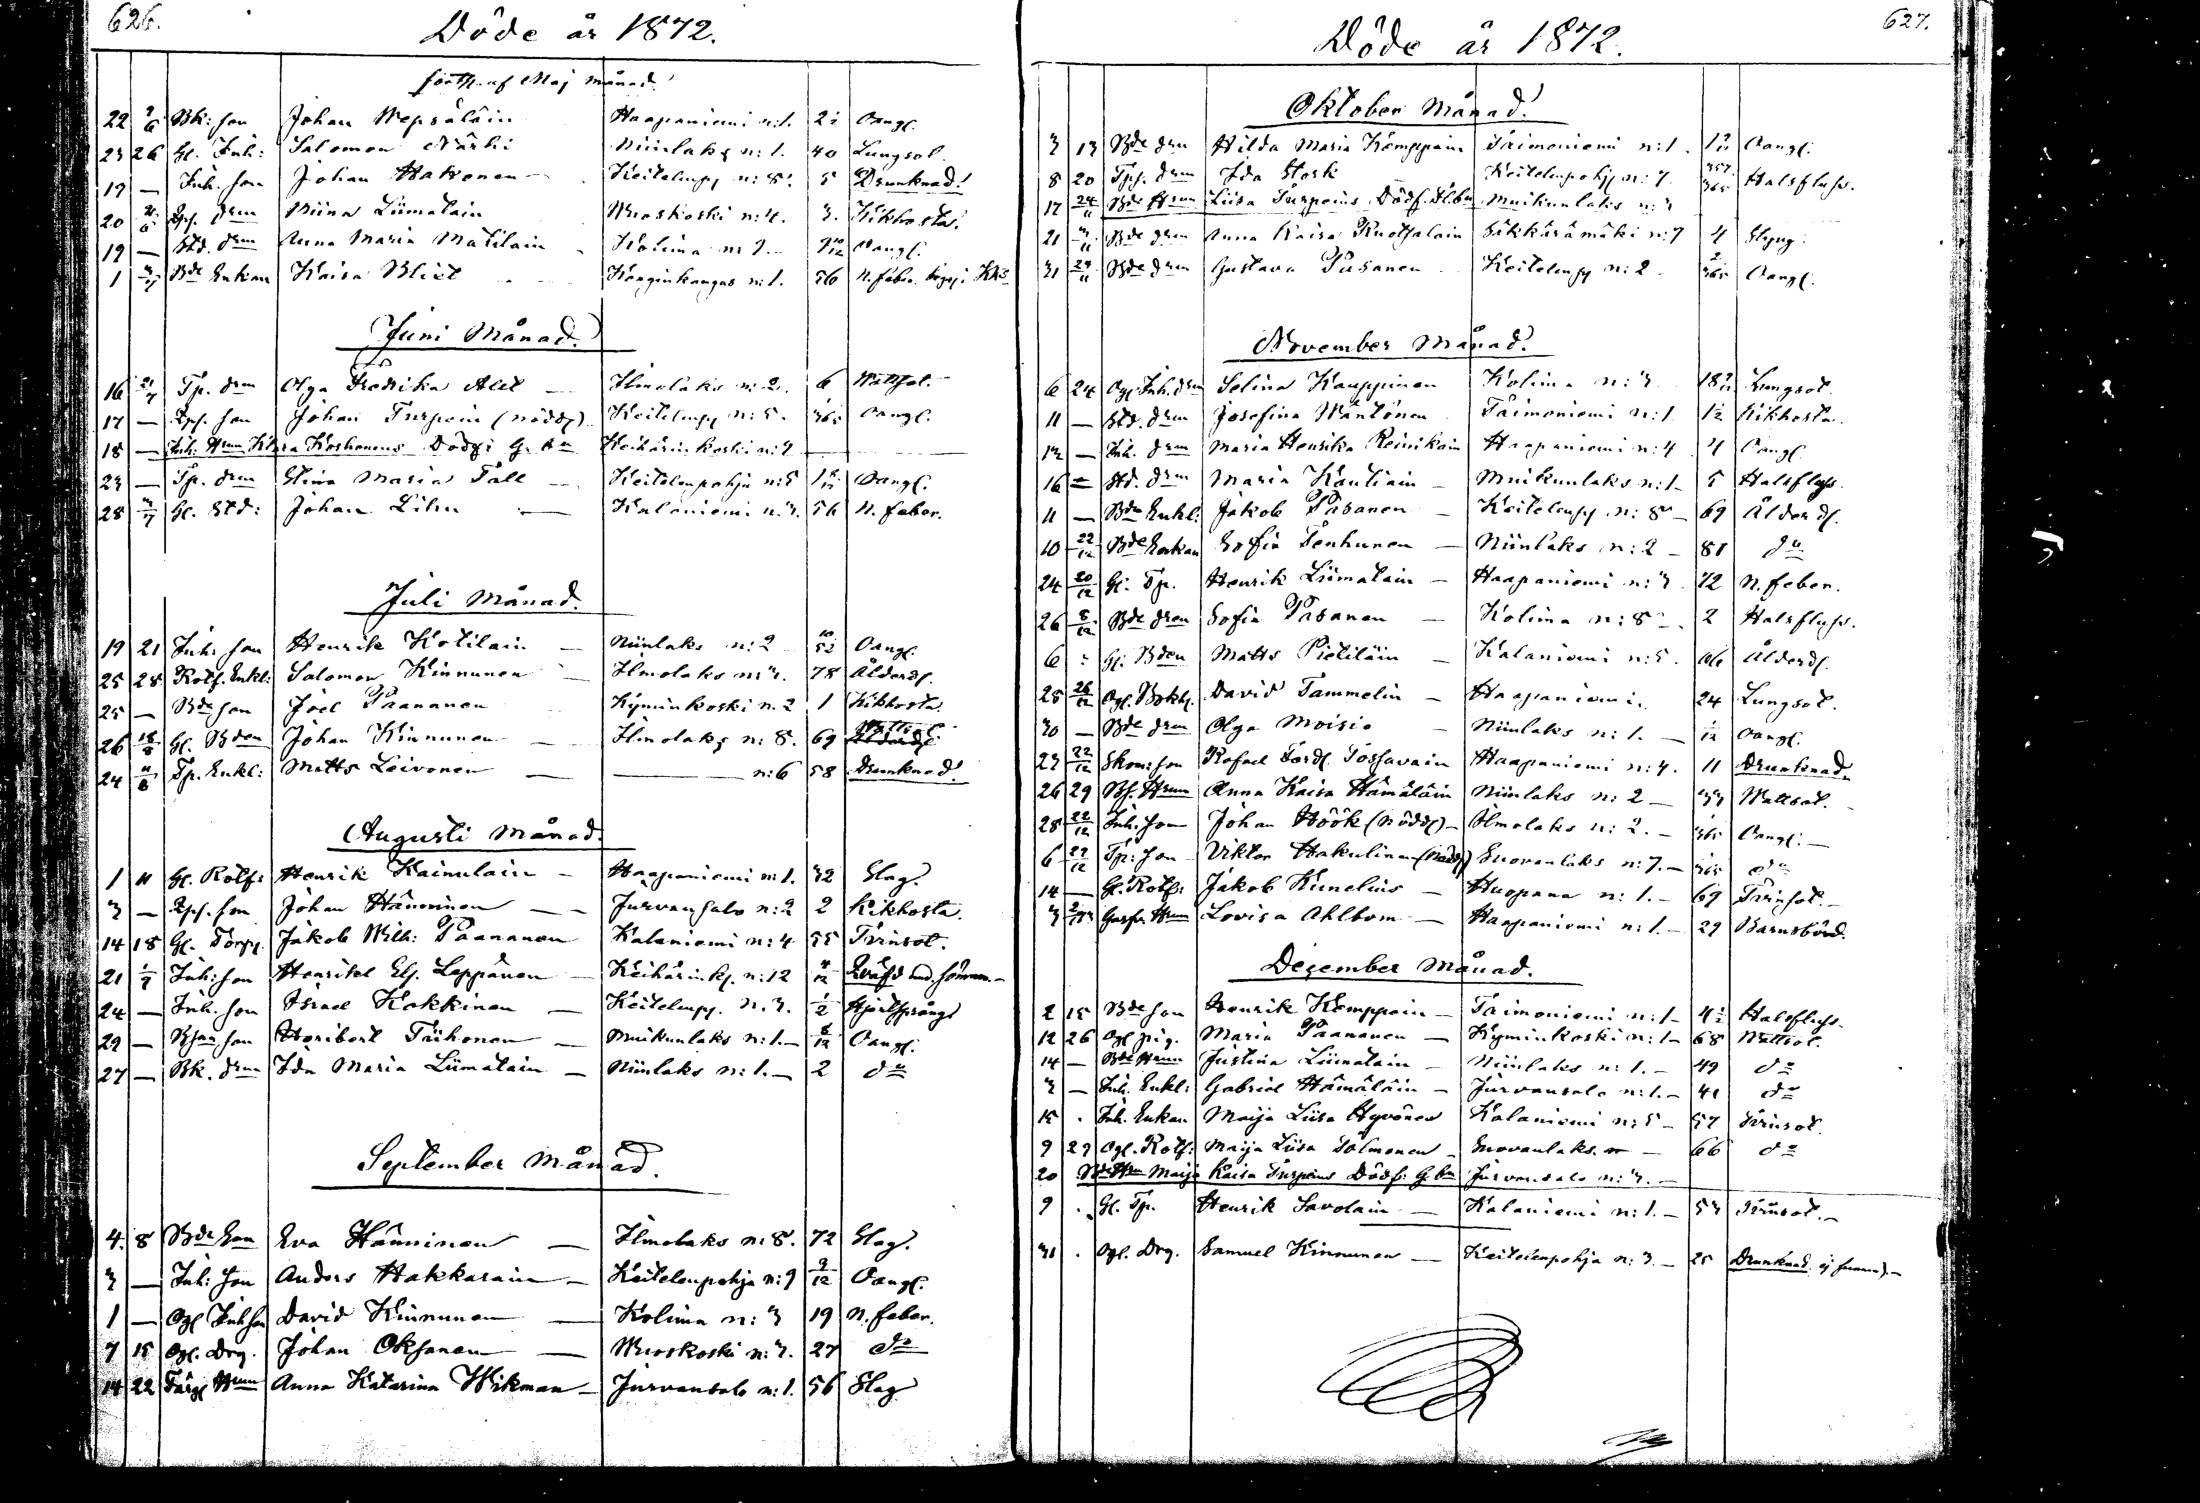 626.
Döde år 1872.
forts. af Maj månad!
22 2/6 Bk: son Johan Wepsäläin Haapaniemi n:1. 2½ Oangf.
23 26 Gl. Inh: Salomon Närhi Niinlaks n: 1. 40 Lungsot.
19 — Inh. son Johan Hakronen — Keitelenpj n: 8. 5 Drunknad!
20 Dr̃n Miina Liimatain Wuoskoski n:4. 3. Kikhosta!
19 — Std. Drn Anna Maria Matilain Kolima n: 2. Oangf.
1 Bde Enkan Kaisa Blict Kanginkangas n:1. 76 N. feber.
Juni Månad.
16 21/7 Tp. Drn Olga Fredrika Alet — Ilmolaks n: 2. 6 Wattsot.
17 — son Johan Turpein (nöddp) Keitelenpj n: 5. Oangf.
18 — Inh: Hrun Klara Koskonens Dödf: G. Bn Keihärinkoski n: 9
23 — Tp. Drn Stina Maria Tall — Keitelenpohja n:5 Oangf.
28 3/7 Gl. Std: Johan Lihn — Kalaniemi n:3. 56 N. feber.
Juli Månad.
19 21 Inh: son Henrik Kotilain — Niinlaks n: 2 10/52 Oangf.
25 28 Rotf. Enkl: Salomon Kinnunen — Ilmolaks n:3. 78 Ålderdf.
25 — Bde son Joel Paananen Kyminkoski n. 2 1 Kikhosta
26 18/8 Gl. Bden Johan Kinnunen — Ilmolaks n: 8. 69
24 4/8 Tp. Enkl: Matts Leivonen — — n:6 58 Drunknad!
Augusti Månad.
1 11 Gl. Rotf: Henrik Kainulain — Haapaniemi n:1. 32 Slag.
3 — son Johan Hänninen — Jurvansalo n:2 2 Kikhosta.
14 18 Gl. Torp. Jakob Wilh: Paananen Kalaniemi n:4 55 Tvinsot.
21 1/9 Inh: son Henrikel Elj. Leppänen — Keihärinkj. n:12 4/12 Qväfd und. sömnen.—
24 — Inh. son Israel Kokkinen — Keitelenpj. n. 3. 1/2 Hjertsprång
29 — son Heribert Tiihonen — Muikunlaks n:1.— 6/12 Oangf.
27 — Bk. Drn Ida Maria Liimatain — Niinlaks n:1.— 2 do
September Månad.
4. 8 Bde Eon Eva Hänninen — Ilmolaks n: 8. 72 Slag.
3 — Inh: son Anders Hakkarain — Keitelenpohja n:9 9/12 Oangf.
1 — Ogl Inhson David Kinnunen — Kolima n: 3 19 N. feber.
7 15 Ogl. Drg. Johan Oksanen — Wuoskoski n: 3. 27 do
14 22 Färg. Hrun Anna Katarina Wikman — Jurvansalo n:1. 56 Slag
627.
Döde år 1872.
Oktober Månad!
3 13 Bde Drn Hilda Maria Kemppain Taimoniemi n:1. Oangf.
8 20 Drn Ida Stork Keitelenpohj n: 7. 357/365 Halsfluss.
17 24/11 Bde Hrun Liisa Turpeins Dödf. Dlbn Muikunlaks n: 3
21 3/11 Bde Drn Anna Kaisa Ruotsalain Säkkärämäki n:7 4 Slag
31 24/11 Bde Drn Gustava Pasanen Keitelenpj n: 2 2/365 Oangf.
November Månad!
6 24 Ogl Inh. Drn Selina Kauppinen Kolima n: 3 Lungsot.
11 — Std. Drn Josefina Mäntönen Taimoniemi n:1 1½ Kikhosta
13 — Inh. Drn Maria Henrika Reinikain Haapaniemi n:4 4 Oangf.
16 — Std. Drn Maria Kautiain — Muikunlaks n:1— 5 Halsfluss.
11 — Bde Enkl: Jakob Pasanen — Keitelenpj n: 8 — 69 Ålderdf.
10 22/12 Bde Enkan Sofia Tenhunen — Niinlaks n: 2 — 81 do
24 20/12 Gl. Tp. Henrik Liimatain — Haapaniemi n: 3. 72 N. feber.
26 8/12 Bde Dren Sofia Pasanen — Kolima n: 8 —. 2 Halsfluss.
6 Gl. Bden Matts Pietiläin — Kalaniemi n: 5. 66 Ålderdf.
28 26/12 Ogl. Bokh. David Tammelin — Haapaniemi. 24 Lungsot.
30 — Bde Drn Olga Moisio — Niinlaks n: 1. — 1/12 Oangf.
23 22/12 Skom: son Rafael Ferd. Tossavain Haapaniemi n: 4. 11 Drunknad.
26 29 Bf. Hrun Anna Kaisa Hämäläin Niinlaks n: 2 — 33 Wattsot.
28 22/12 Inh. son Johan Höök (nöddp) — Ilmolaks n: 2. — 1/365 Oangf.—
6 22/12 Tp. son Viktor Hakulinen (nöddp) Suovanlaks n: 7. — do
14 — Gl. Rotf: Jakob Kunelius — Huopana n: 1. — 69 Tvinsot.—
3 Garfv. Hrun Lovisa Ahlbom — Haapaniemi n: 1. — 29 Barnsbörd.
December Månad.
2 15 Bde son Henrik Kemppain — Taimoniemi n:1— 4½ Halsfluss.
12 26 Ogl pig. Maria Paananen — Kyminkoski n:1— 68 Wattsot.
14 — Bde Hrun Justina Liimatain — Niinlaks n: 1. — 49 do
3 — Inh. Enkl: Gabriel Hämäläin — Jurvansalo n:1. — 41 do
15 . Inh. Enkan Maija Liisa Hyvönen Kalaniemi n: 5 — 57 Tvinsot.
9 29 Ogl. Rotf: Maija Liisa Salmonen — Suovanlaks — 66 do
20 Bde Hrun Maija Kaisa Turpeins Dödf: G. bn Jurvansalo n: 3. —
9 . Gl. Tp. Henrik Savolain — Kalaniemi n:1. — 53 Tvinsot.—
31 . Ogl. Drg. Samuel Kinnunen — Keitelenpohja n: 3. — 25 Drunknad.